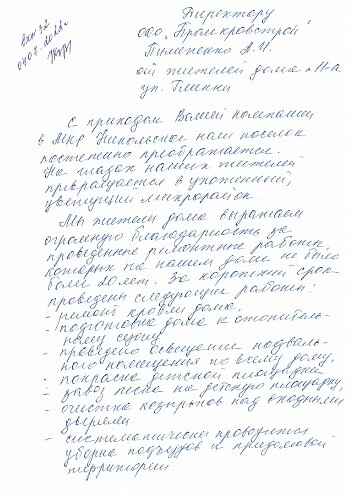 Директору
ООО "Промкровстрой"
Пимененко А.И.
от жителей дома 11-а
ул. Глинки
Вх. 32
04.07.2022г
С приходом Вашей компании
в Мкр Никольское наш поселок
постепенно преображается.
На глазах наших жителей
превращается в ухоженный,
цветущий микрорайон.
Мы жители дома выражаем
огромную благодарность за
проведенные ремонтные работы,
которых на нашем доме не было
более 20 лет. За короткий срок
проведены следующие работы:
- ремонт кровли дома,
- подготовка дома к отопитель-
ному сезону
- проведено освещение подваль-
ного помещения по всему дому,
- покраска детской площадки
- завоз песка на детскую площадку,
- очистка козырьков над входными
дверями
- систематически проводится
уборка подъездов и придомовой
территории